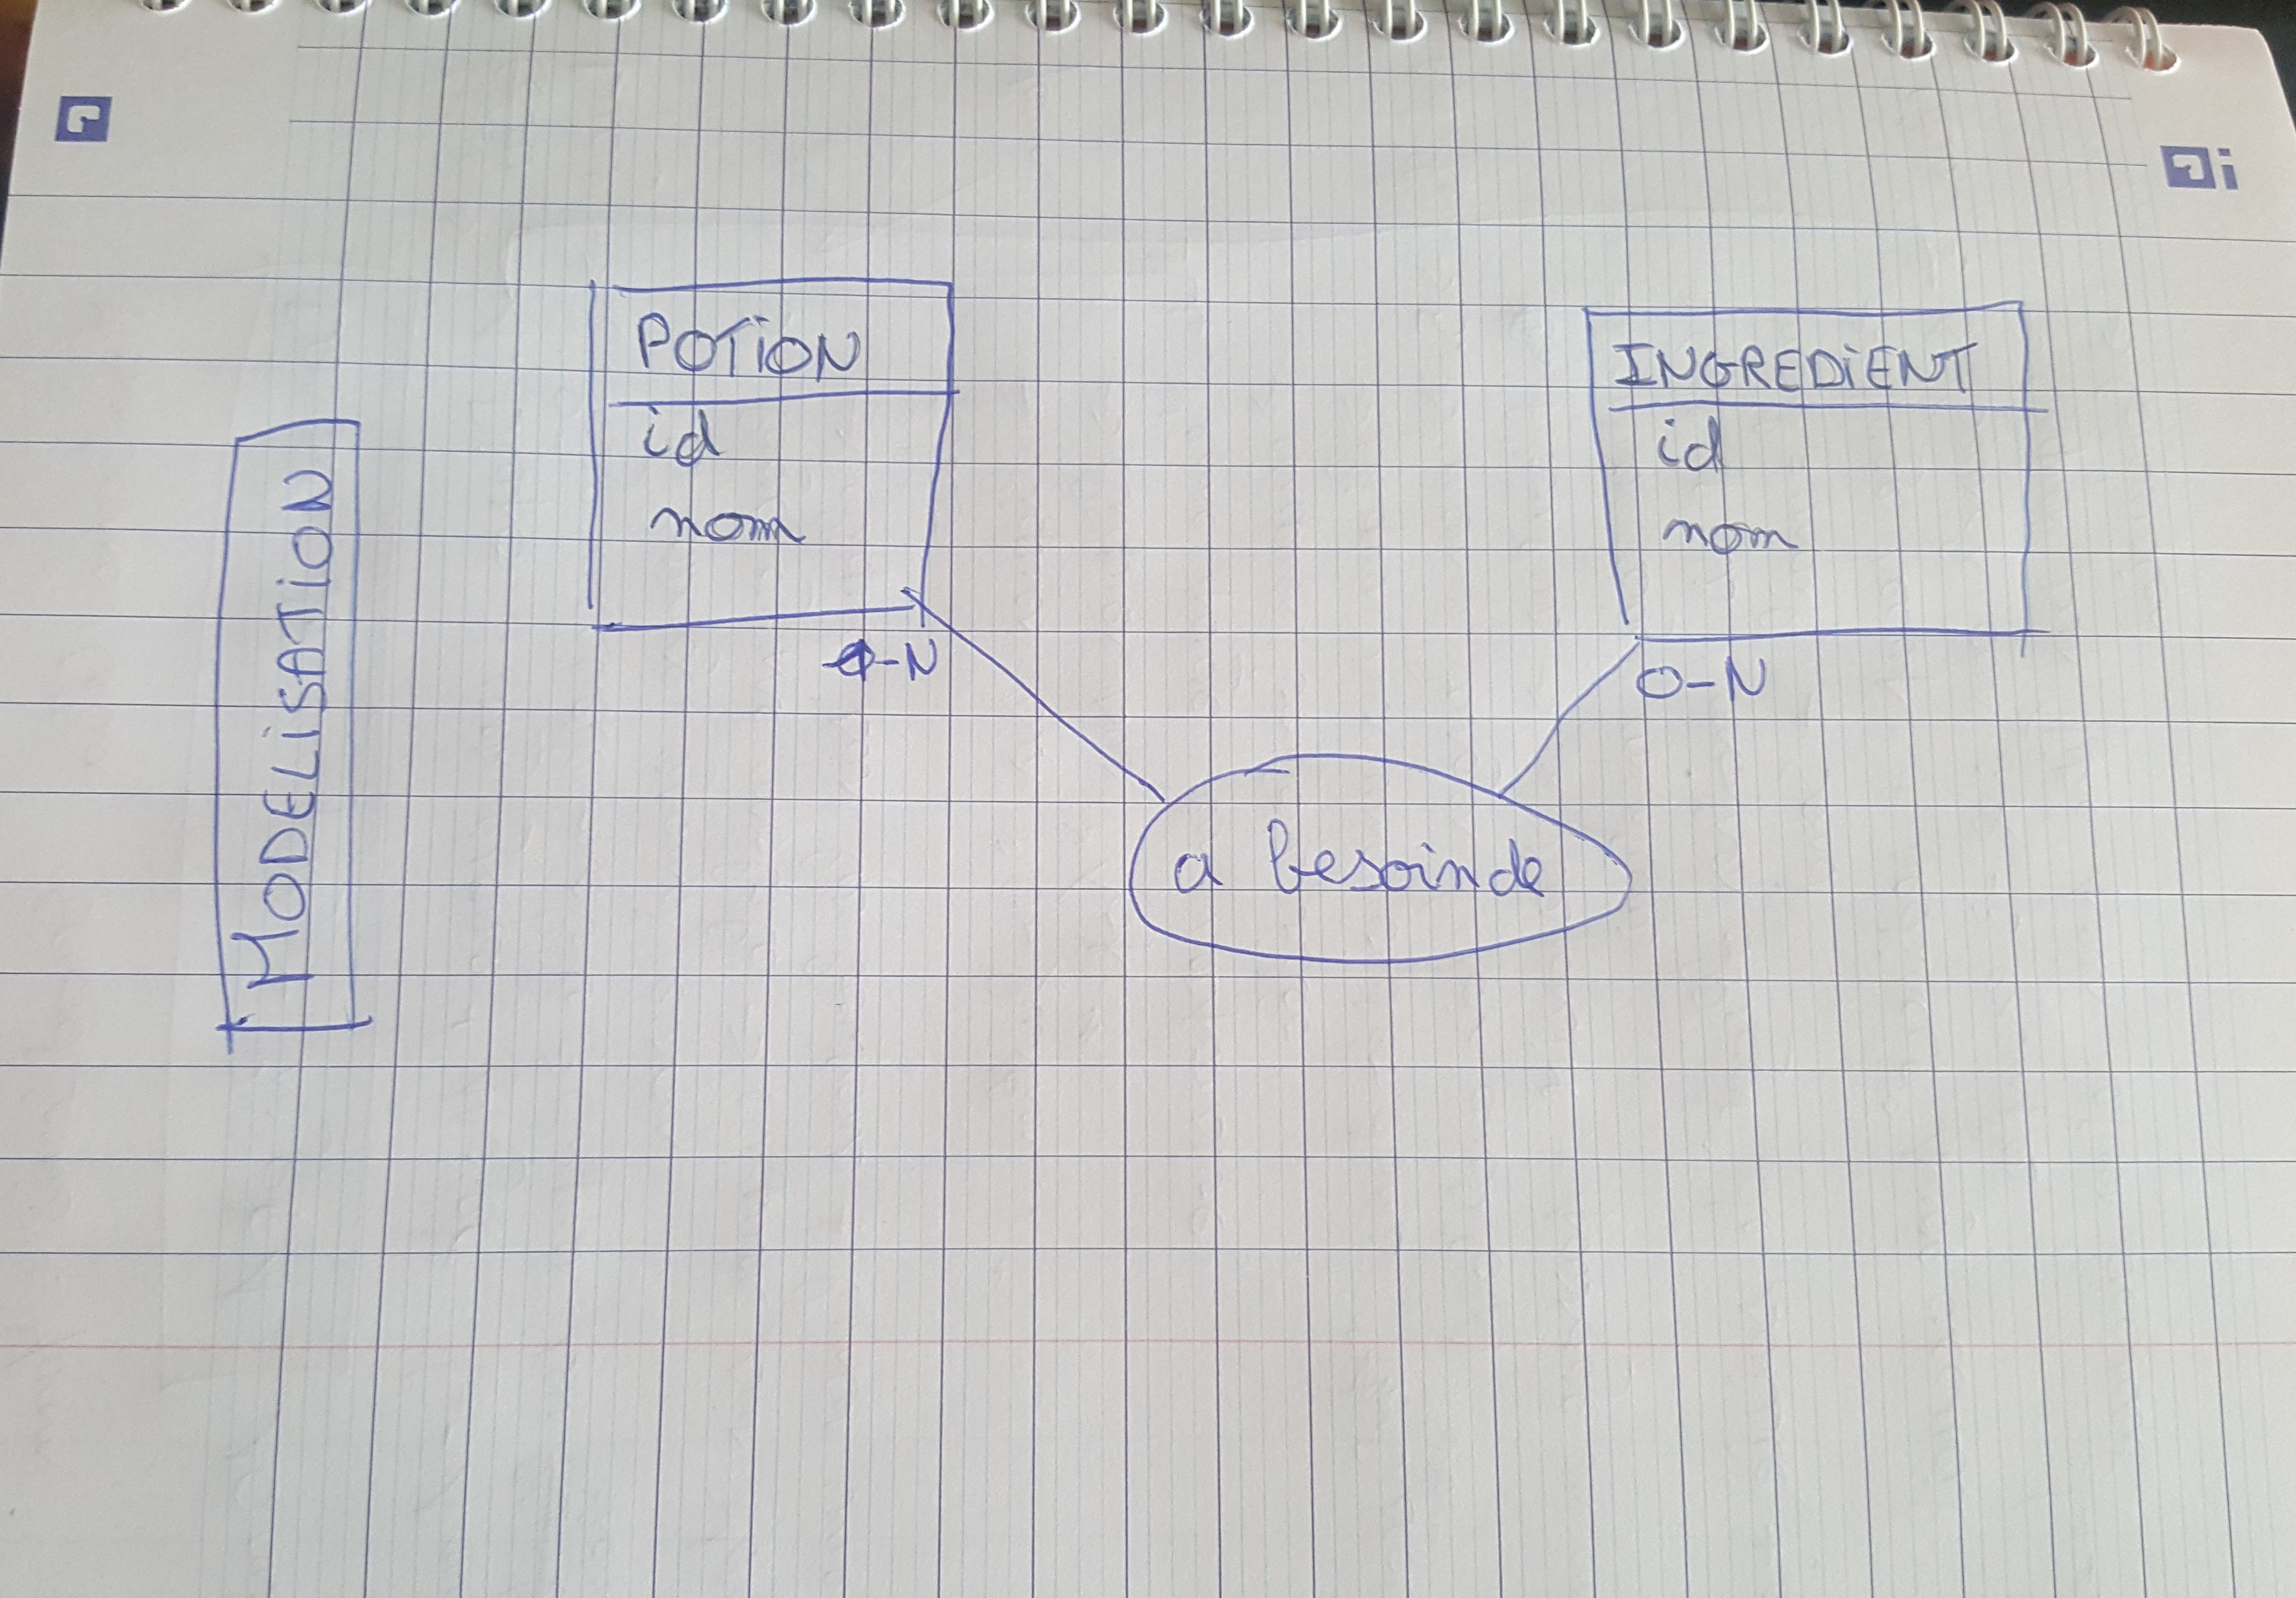 MODELiSATiON
POTiON
id
nom
-N
INGREDiENT
id
nom
0-N
a besoin de